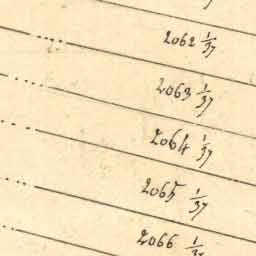 2062 1/37
2063 1/37
2064 1/37
2065 1/37
2066 1/37